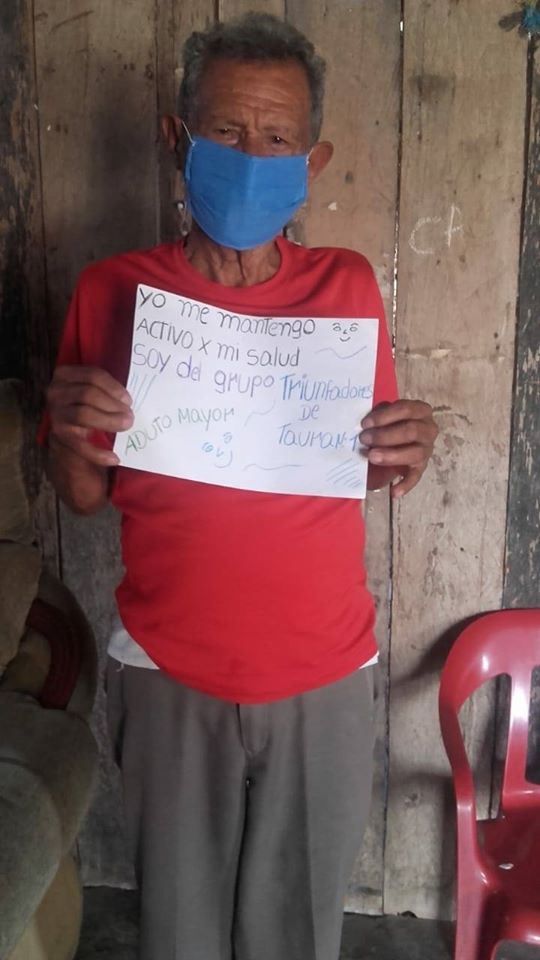 YO me mantengo
ACTIVO X mi salud
SOY del grupo Triunfadores
DE
ADUTO MAYOR